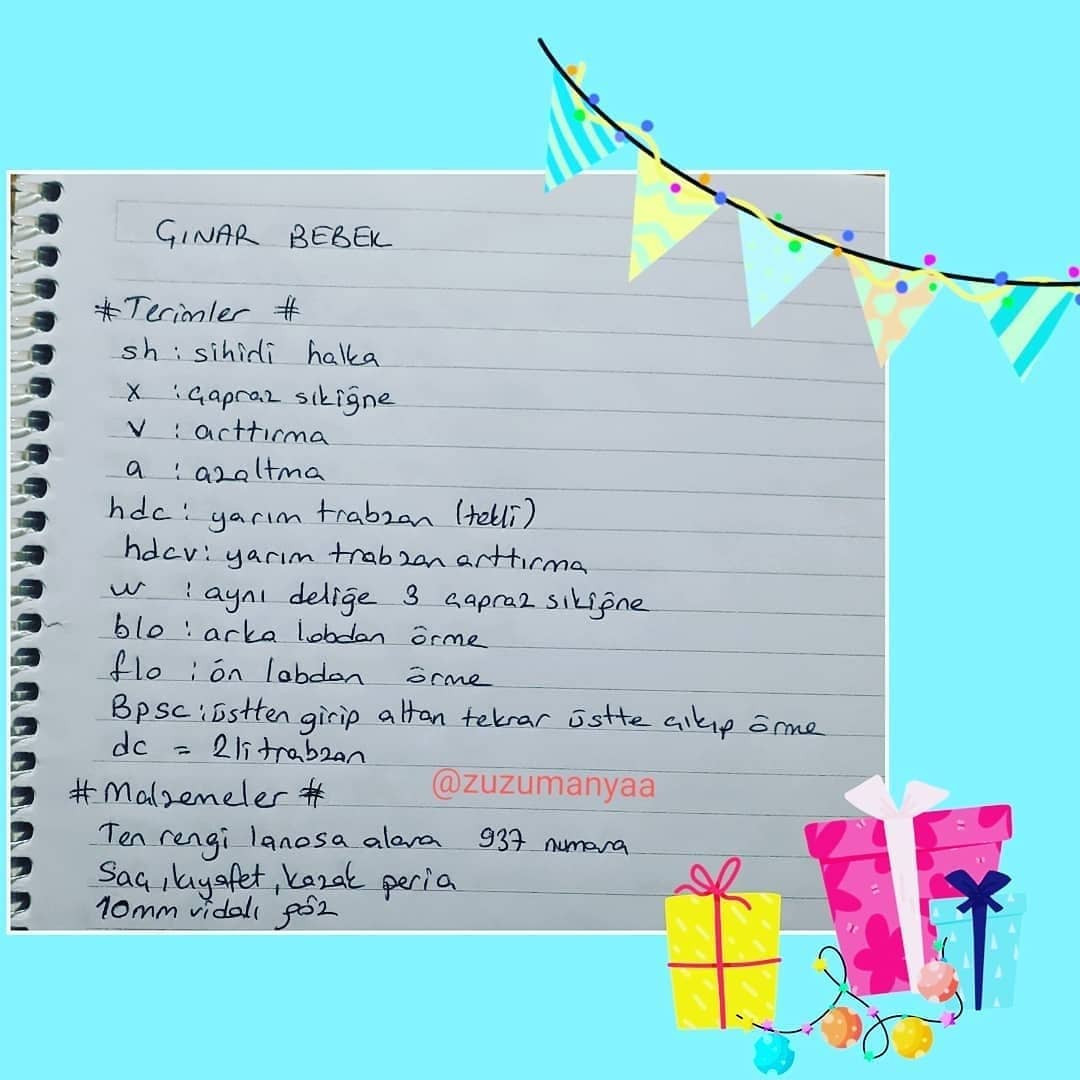 ÇINAR BEBEK
#Terimler #
sh : sihirli halka
x : çapraz sıkiğne
v : arttırma
a : azaltma
hdc : yarım trabzan (tekli)
hdcv : yarım trabzan arttırma
w : aynı deliğe 3 çapraz sıkiğne
blo : arka lobdan örme
flo : ön lobdan örme
Bpsc : üstten girip alttan tekrar üstte çıkıp örme
dc = 2li trabzan
@zuzumanyaa
#Malzemeler #
Ten rengi lanosa alara 937 numara
Saç, kıyafet, kazak peria
10mm vidalı göz